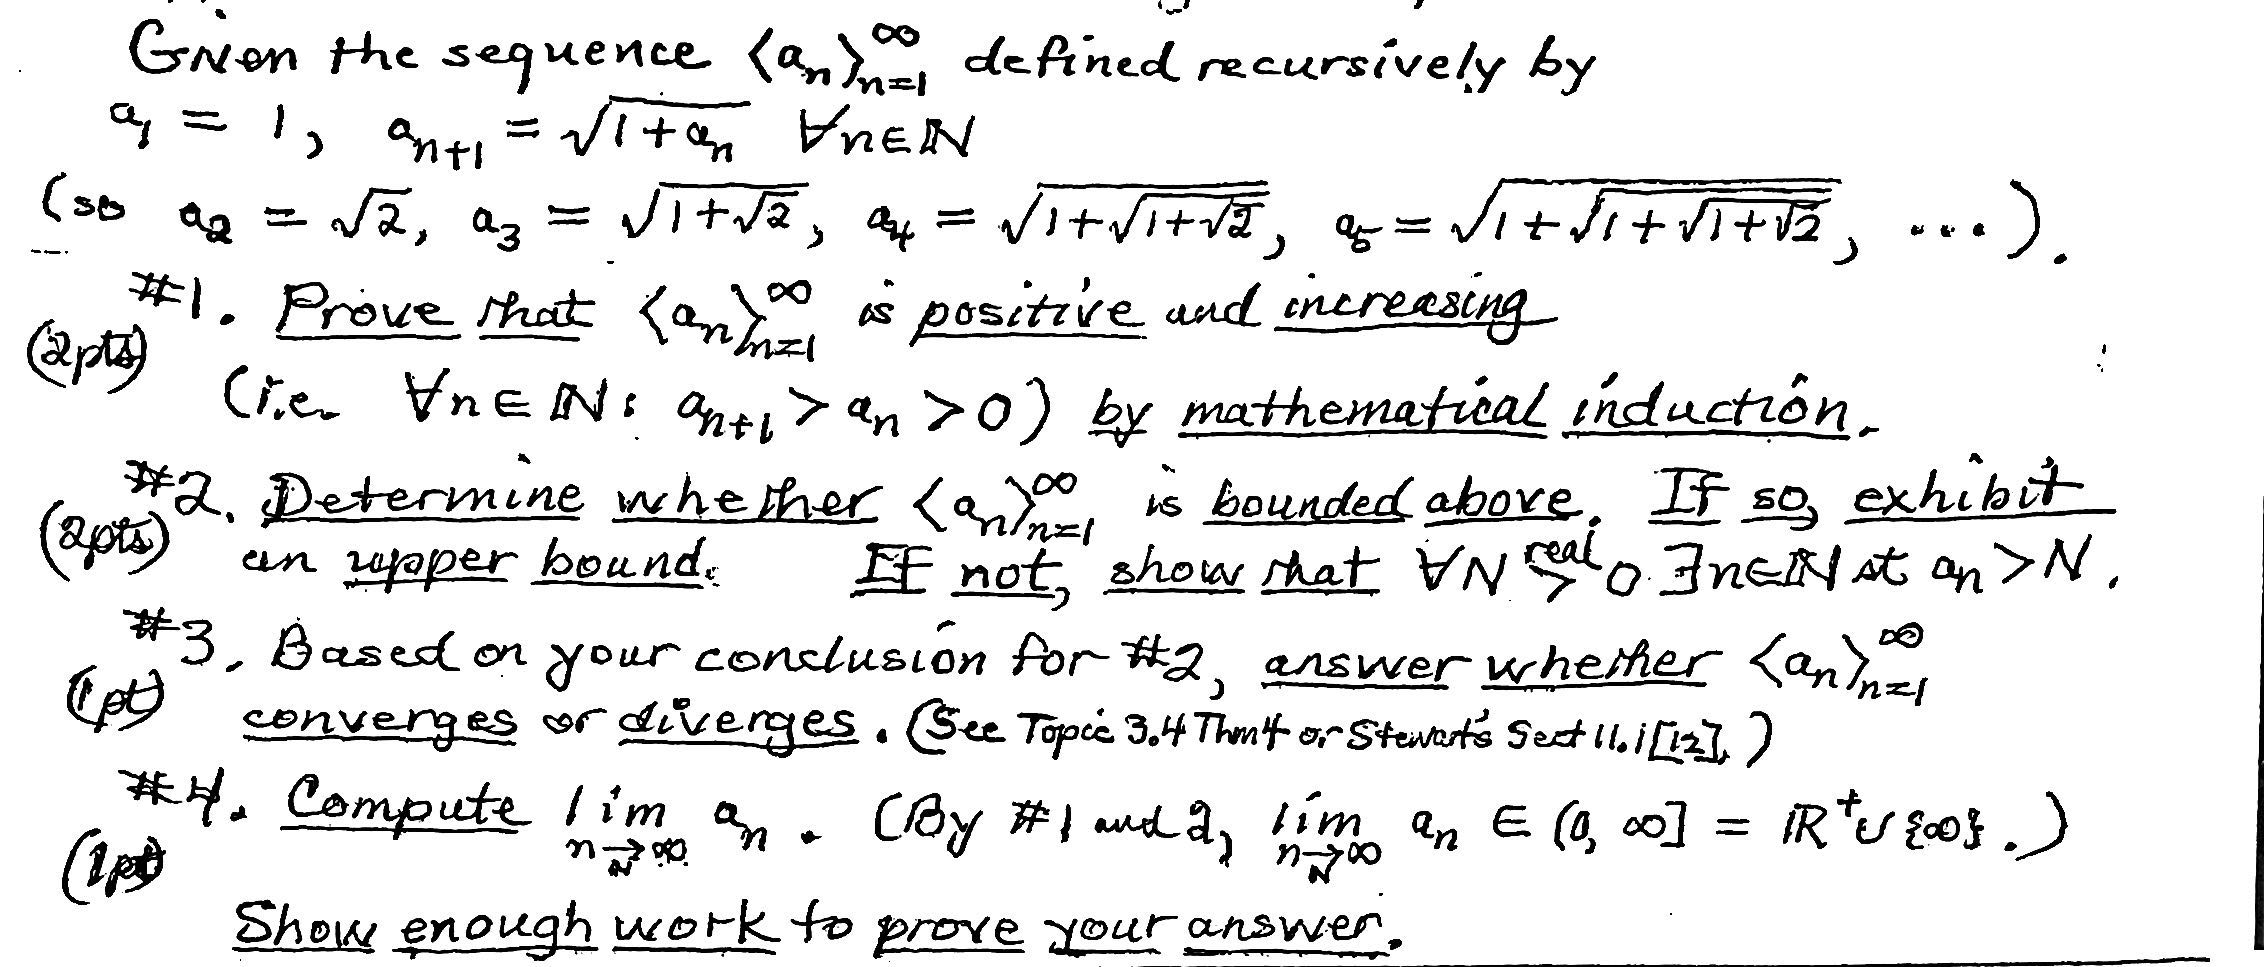 Given the sequence ⟨aₙ⟩ₙ₌₁^∞ defined recursively by
a₁ = 1, aₙ₊₁ = √(1+aₙ) ∀n∈ℕ
(so a₂ = √2, a₃ = √(1+√2), a₄ = √(1+√(1+√2)), a₅ = √(1+√(1+√(1+√2))), ...).
#1. Prove that ⟨aₙ⟩ₙ₌₁^∞ is positive and increasing
(2pts)
(i.e. ∀n∈ℕ: aₙ₊₁ > aₙ > 0) by mathematical induction.
#2. Determine whether ⟨aₙ⟩ₙ₌₁^∞ is bounded above. If so, exhibit
(2pts) an upper bound. If not, show that ∀N real > 0 ∃n∈ℕ st aₙ > N.
#3. Based on your conclusion for #2, answer whether ⟨aₙ⟩ₙ₌₁^∞
(1pt) converges or diverges. (See Topic 3.4 Thm 4 or Stewart's Sect 11.1[12].)
#4. Compute lim n→∞ ℕ aₙ. (By #1 and 2, lim n→∞ ℕ aₙ ∈ (0, ∞] = ℝ⁺∪{∞}.)
(1pt)
Show enough work to prove your answer.